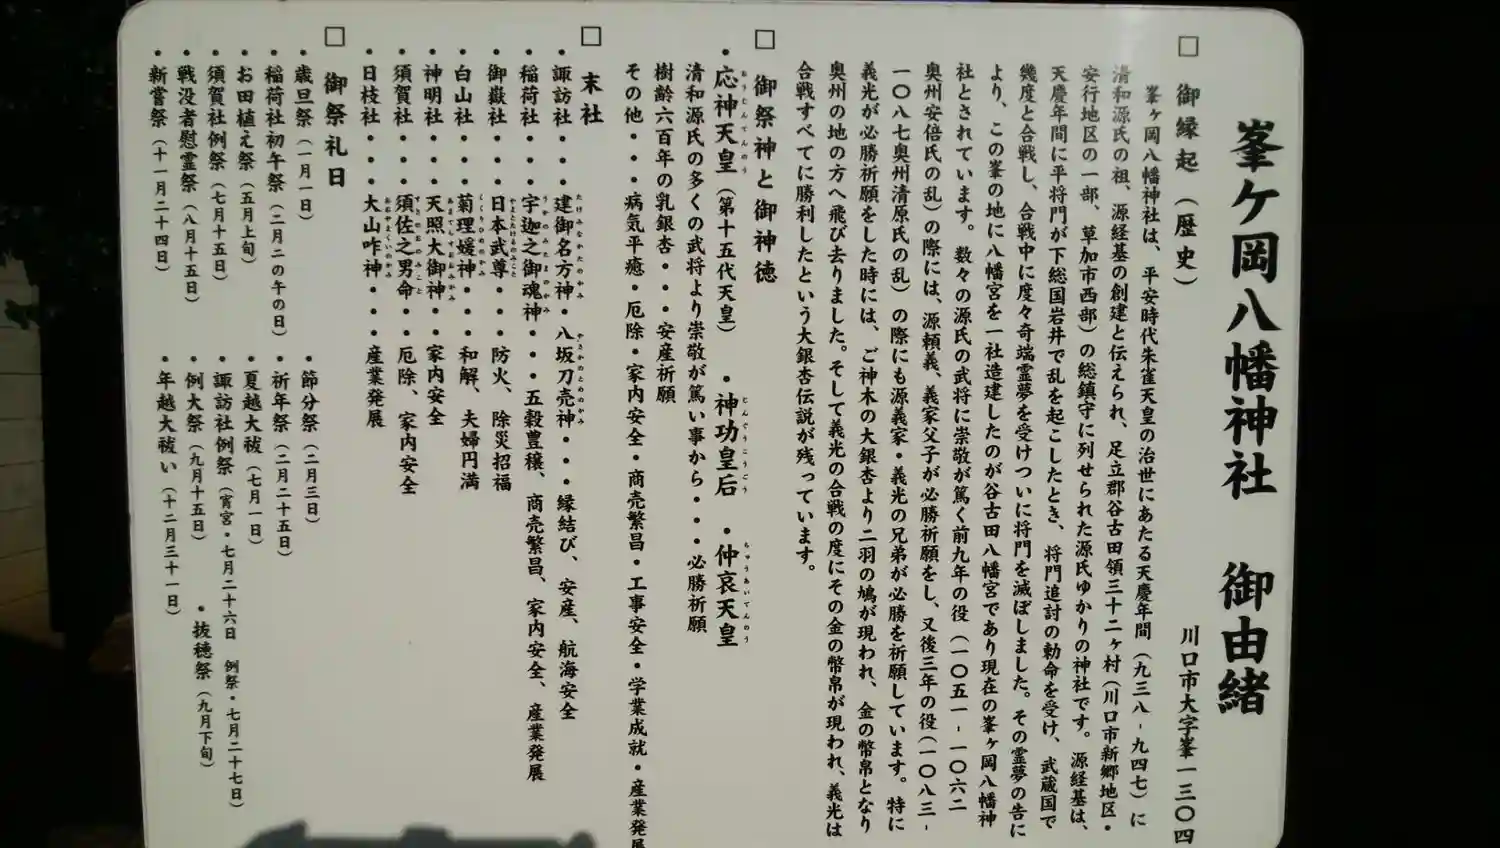 峯ケ岡八幡神社 御由緒
川口市大字峯一三〇四
□ 御縁起(歴史)
峯ヶ岡八幡神社は、平安時代朱雀天皇の治世にあたる天慶年間(九三八-九四七)に
清和源氏の祖、源経基の創建と伝えられ、足立郡谷古田領三十二ヶ村(川口市新郷地区・
安行地区の一部、草加市西部)の総鎮守に列せられた源氏ゆかりの神社です。源経基は、
天慶年間に平将門が下総国岩井で乱を起こしたとき、将門追討の勅命を受け、武蔵国で
幾度と合戦し、合戦中に度々奇端霊夢を受けついに将門を滅ぼしました。その霊夢の告に
より、この峯の地に八幡宮を一社造建したのが谷古田八幡宮であり現在の峯ヶ岡八幡神
社とされています。数々の源氏の武将に崇敬が篤く前九年の役(一〇五一-一〇六二
奥州安倍氏の乱)の際には、源頼義、義家父子が必勝祈願をし、又後三年の役(一〇八三-
一〇八七奥州清原氏の乱)の際にも源義家・義光の兄弟が必勝を祈願しています。特に
義光が必勝祈願をした時には、ご神木の大銀杏より二羽の鳩が現われ、金の幣帛となり
奥州の地の方へ飛び去りました。そして義光の合戦の度にその金の幣帛が現われ、義光は
合戦すべてに勝利したという大銀杏伝説が残っています。
□ 御祭神と御神徳
・応神天皇(第十五代天皇) ・神功皇后 ・仲哀天皇
おうじんてんのう じんぐうこうごう ちゅうあいてんのう
清和源氏の多くの武将より崇敬が篤い事から・・・必勝祈願
樹齢六百年の乳銀杏・・・安産祈願
その他・・・病気平癒・厄除・家内安全・商売繁昌・工事安全・学業成就・産業発展
□ 末社
・諏訪社・・・建御名方神・八坂刀売神・・・縁結び、安産、航海安全
たけみなかたのかみ やさかのとめのかみ
・稲荷社・・・宇迦之御魂神・・・五穀豊穣、商売繁昌、家内安全、産業発展
うかのみたまのかみ
・御嶽社・・・日本武尊・・・防火、除災招福
やまとたけるのみこと
・白山社・・・菊理媛神・・・和解、夫婦円満
くくりひめのかみ
・神明社・・・天照大御神・・・家内安全
あまてらすおおみかみ
・須賀社・・・須佐之男命・・・厄除、家内安全
すさのおのみこと
・日枝社・・・大山咋神・・・産業発展
おおやまくいのかみ
□ 御祭礼日
・歳旦祭(一月一日) ・節分祭(二月三日)
・稲荷社初午祭(二月二の午の日) ・祈年祭(二月二十五日)
・お田植え祭(五月上旬) ・夏越大祓(七月一日)
・須賀社例祭(七月十五日) ・諏訪社例祭(宵宮・七月二十六日 例祭・七月二十七日)
・戦没者慰霊祭(八月十五日) ・例大祭(九月十五日) ・抜穂祭(九月下旬)
・新嘗祭(十一月二十四日) ・年越大祓い(十二月三十一日)